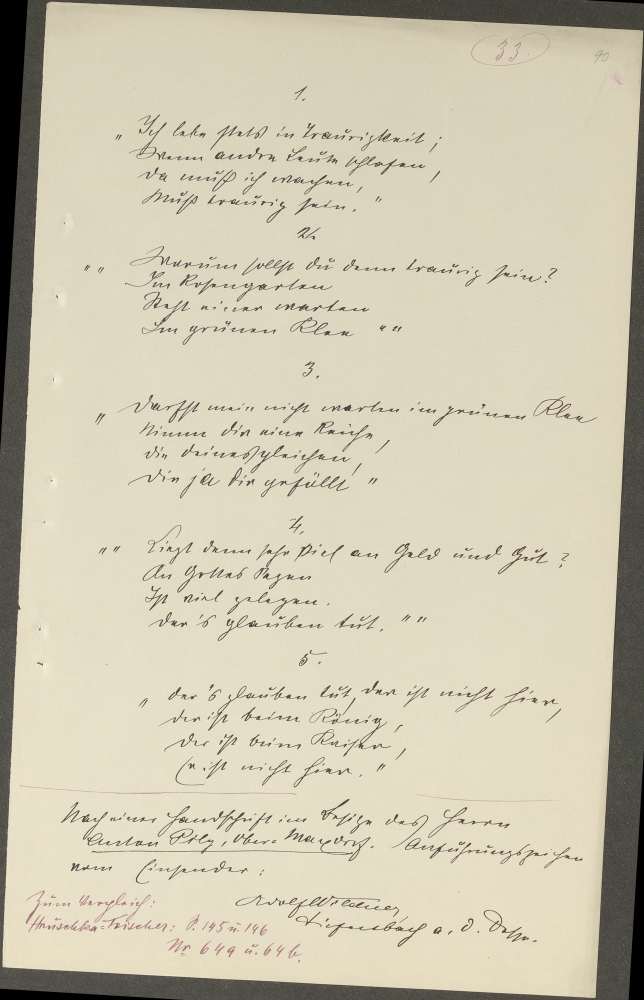 33.
90
1.
„Ich lebe stets in Traurigkeit;
Wenn andre Leute schlafen,
Da muß ich wachen,
Muß traurig sein."
2.
„„Warum sollst du denn traurig sein?
Im Rosengarten
Steht einer warten
Im grünen Klee""
3.
„Darfst mein nicht warten im grünen Klee
Nimm dir eine Reiche,
Die deinesgleichen,
Die ja dir gefällt"
4.
„„Liegt denn sehr viel an Geld und Gut?
An Gottes Segen
Ist viel gelegen.
Der's glauben tut.""
5.
„Der's glauben tut, der ist nicht hier,
Der ist beim König,
Der ist beim Kaiser,
Er ist nicht hier."
Nach einer Handschrift im Besitze des Herrn
Anton Pilz, Ober-. Anführungszeichen
vom Einsender:
Adolf Wildner
Tiefenbach a. d. Desse.
Zum Vergleich:
Hruschka-Toischer: S. 145 u. 146
Nr 64a u. 64b.